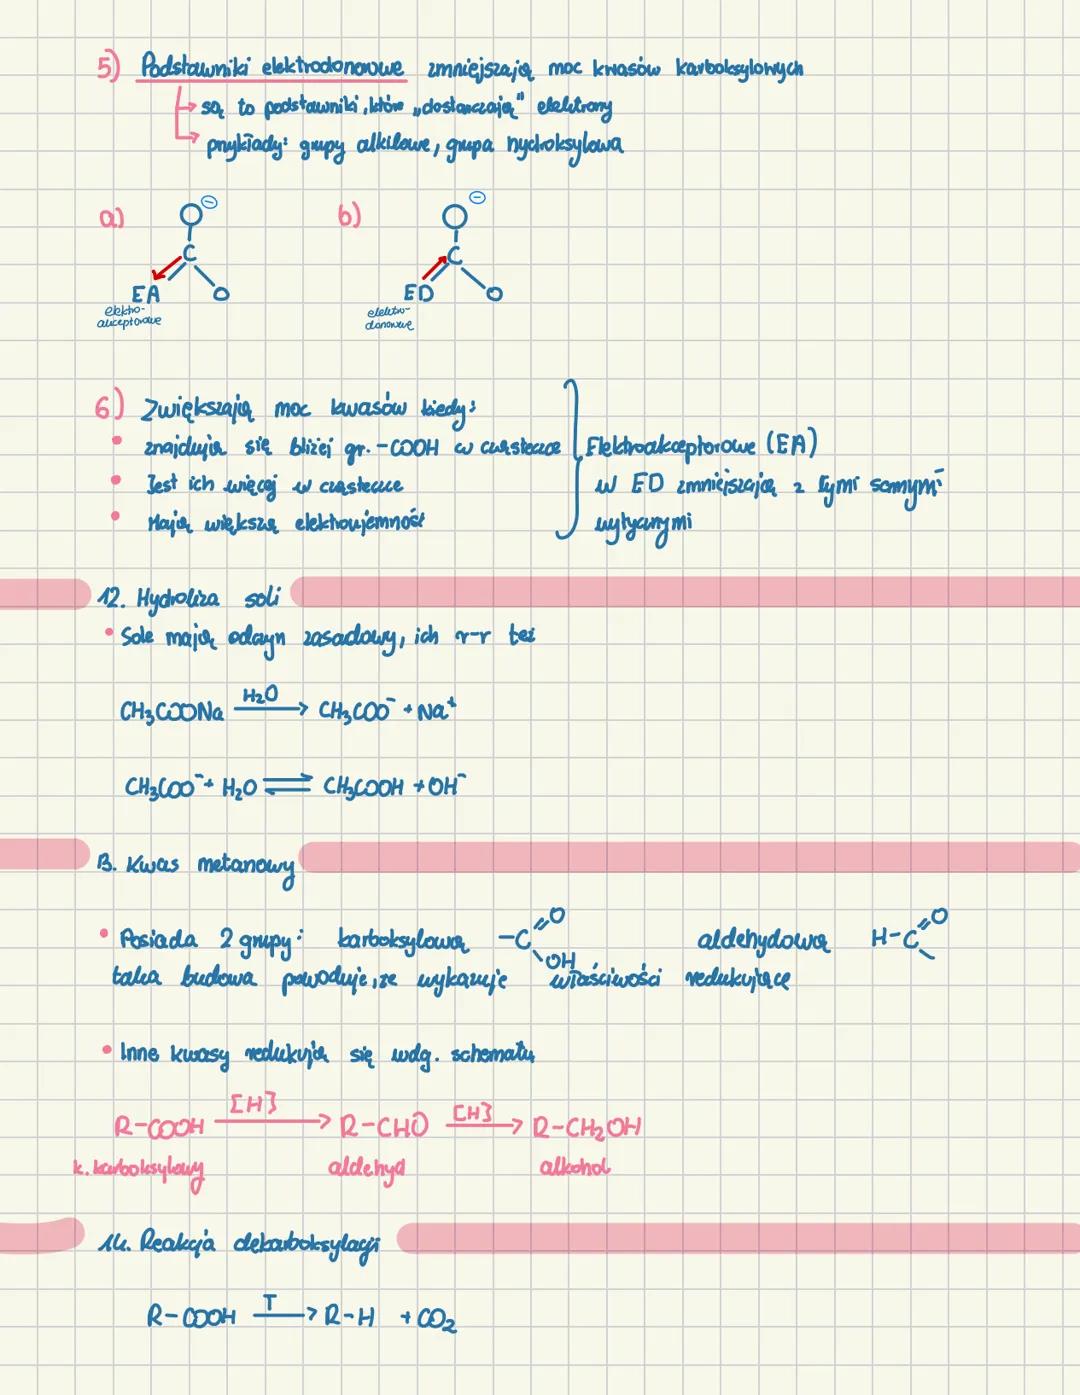 5) Podstawniki elektrodonorowe zmniejszają moc kwasów karboksylowych
są to podstawniki, które „dostarczają" elektrony
przykłady: grupy alkilowe, grupa hydroksylowa
a) b)
O ⊖ O ⊖
C C
EA O ED O
elektro-
akceptorowe
elektro-
donorowe
6) Zwiększają moc kwasów kiedy:
• znajdują się bliżej gr. -COOH w cząsteczce
• Jest ich więcej w cząsteczce
• Mają większą elektroujemność
Elektroakceptorowe (EA)
w ED zmniejszają z tymi samymi
wytycznymi
12. Hydroliza soli
• Sole mają odczyn zasadowy, ich r-r też
CH₃COONa H₂O → CH₃COO⁻ + Na⁺
CH₃COO⁻ + H₂O ⇌ CH₃COOH + OH⁻
13. Kwas metanowy
• Posiada 2 grupy: karboksylową -C=O OH aldehydową H-C=O
taka budowa powoduje, że wykazuje właściwości redukujące
• Inne kwasy redukują się wdg. schematu
R-COOH [H] → R-CHO [H] → R-CH₂OH
k. karboksylowy aldehyd alkohol
14. Reakcja dekarboksylacji
R-COOH T → R-H + CO₂